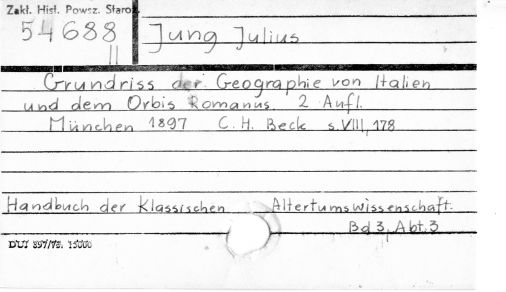 Zakł. Hist. Powsz. Staroż.
54688
II
Jung Julius
Grundriss der Geographie von Italien
und dem Orbis Romanus. 2 Aufl.
München 1897 C. H. Beck s. VIII, 178
Handbuch der Klassischen Altertumswissenschaft.
Bd 3, Abt. 3
DUJ 897/78. 15000